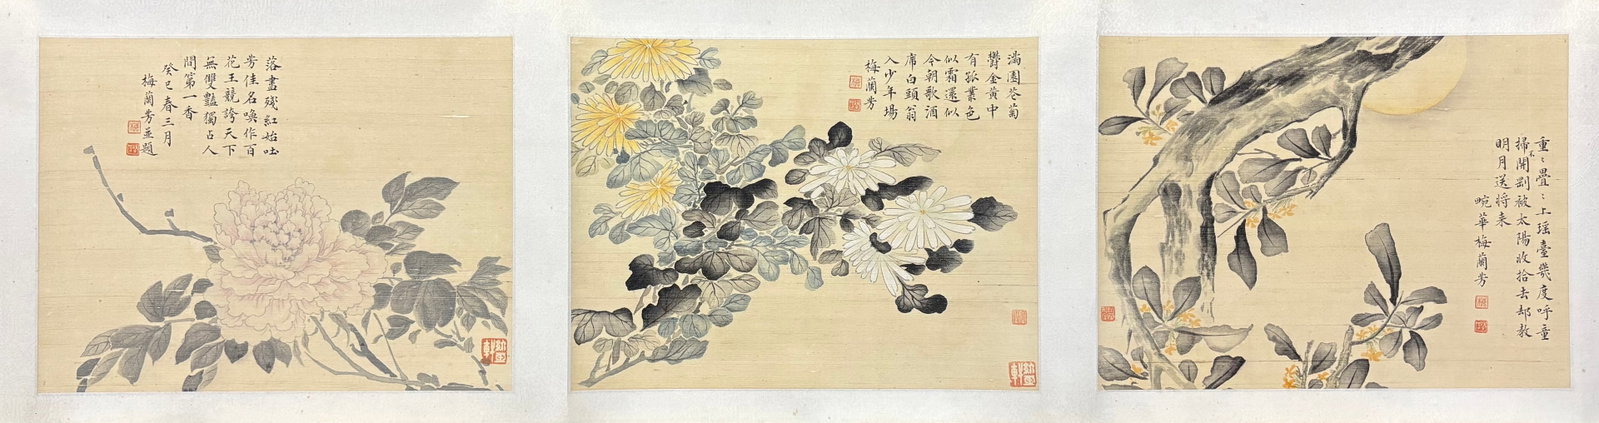 落盡殘紅始吐
芳佳名喚作百
花王競誇天下
無雙豔獨占人
間第一香
癸巳春三月
梅蘭芳並題
滿園花菊
鬱金黃中
有孤叢色
似霜還似
今朝歌酒
席白頭翁
入少年場
梅蘭芳
重〻疊〻上瑤臺幾度呼童
掃不開剛被太陽收拾去却教
明月送將來
畹華梅蘭芳